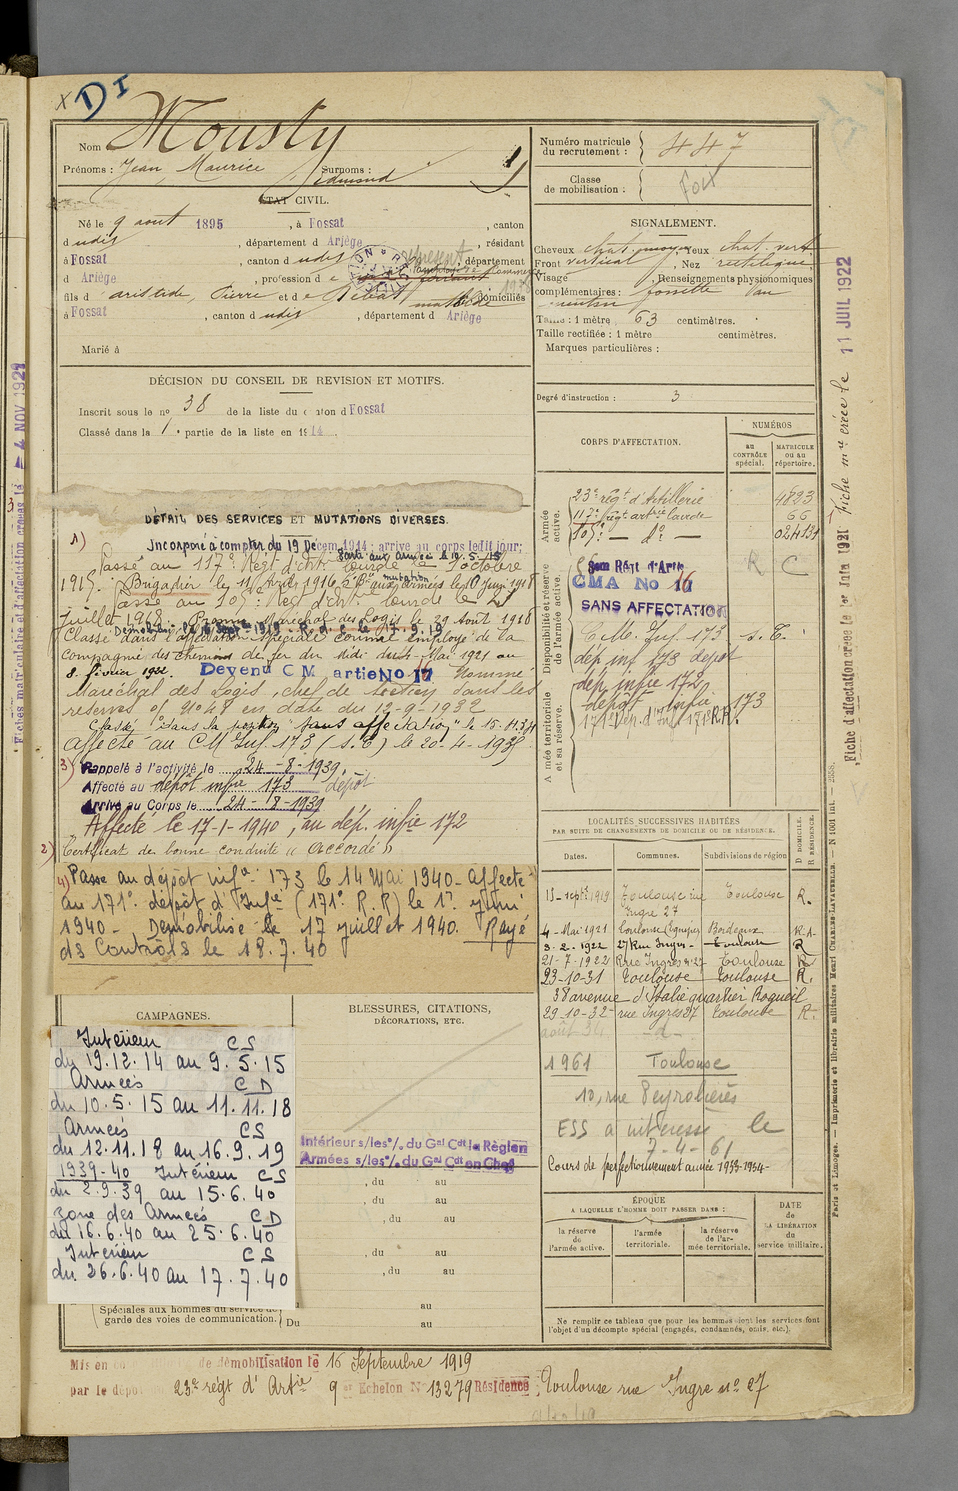 x DI
Nom Mousty
Prénoms : Jean Maurice Surnoms : Edmond
1)
Numéro matricule
du recrutement : 447
Classe
de mobilisation :
ÉTAT CIVIL.
Né le 9 aout 1895, à Fossat, canton
dudit, département d Ariège, résidant
à Fossat, canton d udit, département
d Ariège, profession d
fils d aristide, Pierre et d e Rebat mathilde domiciliés
à Fossat, canton d udit, département d Ariège
Marié à
SIGNALEMENT.
Cheveux chat. moyen Yeux chat. vert
Front vertical, Nez rectiligne
Visage, Renseignements physionomiques
complémentaires : fossette au
menton
Taille : 1 mètre 63 centimètres.
Taille rectifiée : 1 mètre centimètres.
Marques particulières :
Degré d'instruction : 3
DÉCISION DU CONSEIL DE REVISION ET MOTIFS.
Inscrit sous le no 38 de la liste du canton d Fossat
Classé dans la 1e partie de la liste en 1914.
CORPS D'AFFECTATION.
NUMÉROS
au
CONTRÔLE
spécial.
MATRICULE
ou au
répertoire.
Armée
active.
23e régt d'Artillerie 4823
117e régt artrie lourde 66
105e — do — 024131
Disponibilité et réserve
de l'armée active.
Régt d'Artie K C
CMA No 16
SANS AFFECTATION
C.M. Inf. 173 s. C.
dép. inf 173 depot
Armée territoriale
et sa réserve.
dép. infie 172
depot infie 173
171e Dép. d'Infie 171e R.R.
DÉTAIL DES SERVICES ET MUTATIONS DIVERSES.
1)
Incorporé à compter du 19 Décem. 1914 : arrivé au corps ledit jour;
Parti aux armées le 10.5.15
Passé au 117e Régt d'Artie lourde le 1 octobre
1915. Brigadier le 11 Avril 1916, aux armées le 10 juin 1918
mutation
Passé au 105e Régt d'Artie lourde le 21
juillet 1918. Promu Maréchal des Logis le 29 Aout 1918
Démobilisé le 16 Sept 1919
Classé dans affectation spéciale comme Employé de la
Compagnie des chemins de fer du Midi du 4 Mai 1921 au
8 février 1922. Devenu C M artie No 17 Nommé
Maréchal des Logis, chef de section dans les
réserves en date du 12-9-1932
Classé "dans la position "sans affectation" le 15.11.34
Affecté au CM Inf. 173 (S.C) le 20.4.1935
3) Rappelé à l'activité le 24-8-1939.
Affecté au depôt infie 173 dépôt
Arrivé au Corps le 24-8-1939
Affecté le 17-1-1940, au dép. infie 172
2) Certificat de bonne conduite "Accordé"
4) Passé au dépot infie 173 le 14 Mai 1940 - affecté
au 171e dépôt d'Infie (171e R.R) le 17 juin
1940 - Démobilisé le 17 juillet 1940. Rayé
ds Contrôls le 18.7.40
LOCALITÉS SUCCESSIVES HABITÉES
PAR SUITE DE CHANGEMENTS DE DOMICILE OU DE RÉSIDENCE.
D DOMICILE.
R RÉSIDENCE.
Dates. Communes. Subdivisions de région
15 septbre 1919 Toulouse rue Toulouse R.
Ingre 27
4 - Mai 1921 Bordeaux R.A.
3.2.1922 27 Rue Ingres - Toulouse R
21-7-1922 Rue Ingres n° 27 Toulouse R
23-10-31 Toulouse Toulouse R.
38 avenue d'Italie quartier Roqueil
29-10-32 rue Ingres 27 Toulouse R-
1961 Toulouse
10, rue Peyrolières
ESS à intéressé le
7-4-61
Cours de perfectionnement année 1933-1934-
CAMPAGNES.
Intérieur CS
du 19.12.14 au 9.5.15
Armées CD
du 10.5.15 au 11.11.18
Armées CS
du 12.11.18 au 16.9.19
1939-40 Intérieur CS
du 2.9.39 au 15.6.40
zone des Armées CD
du 16.6.40 au 25.6.40
Intérieur CS
du 26.6.40 au 17.7.40
Spéciales aux hommes du service de
garde des voies de communication.
Du au
au
BLESSURES, CITATIONS,
DÉCORATIONS, ETC.
Intérieur s/les o/. du Gal Cdt la Région
Armées s/les o/. du Gal Cdt en Chef
, du au
, du au
, du au
, du au
, du au
ÉPOQUE
A LAQUELLE L'HOMME DOIT PASSER DANS :
la réserve
de
l'armée active.
l'armée
territoriale.
la réserve
de l'ar-
mée territoriale.
DATE
de
LA LIBÉRATION
du
service militaire.
Ne remplir ce tableau que pour les hommes dont les services font
l'objet d'un décompte spécial (engagés, condamnés, omis, etc.).
Mis en de démobilisation le 16 Septembre 1919
par le dépôt 23e régt d'Artie 9e Echelon No 13279 Résidence : Toulouse rue Ingre no 27
11 JUIL 1922
Fiche mle créée le
Fiche d'affectation créée le 1er Juin 1921
Paris et Limoges. — Imprimerie et librairie militaires Henri CHARLES-LAVAUZELLE. — N 1001 int. — 3558.
Fiches matriculaire et d'affectation créées le 4 NOV 1921